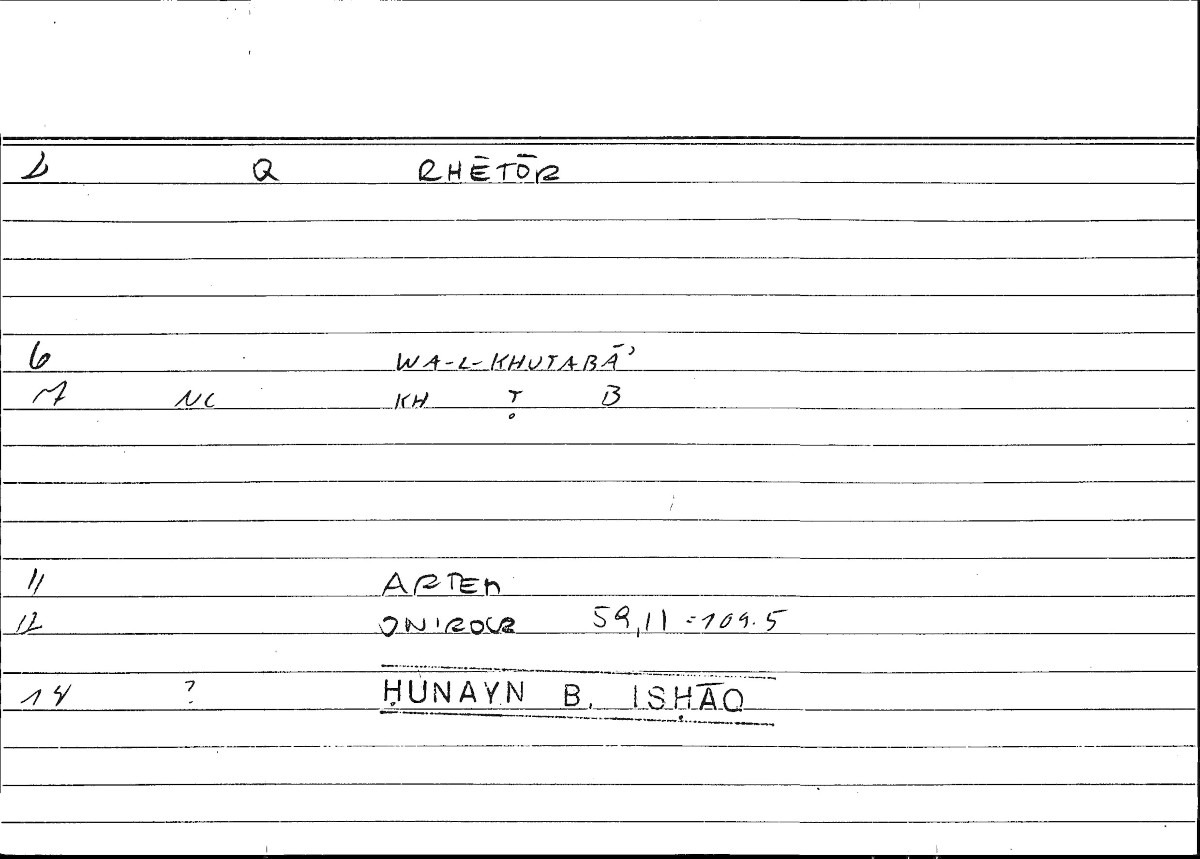 Q RHĒTŌR
6 WA-L-KHUTABĀʾ
7 NC KH Ṭ B
11 ARTEM
12 ONIROCR 59,11 = 109.5
14 ? ḤUNAYN B. ISḤĀQ